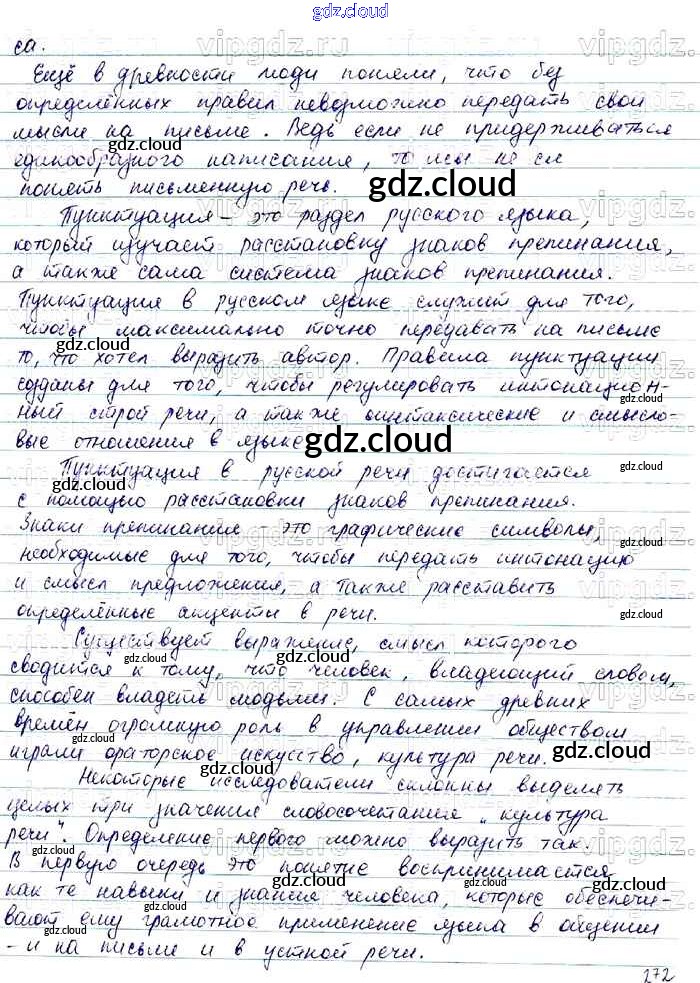 gdz.cloud
са.
Ещё в древности люди поняли, что без
определённых правил невозможно передать свои
мысли на письме. Ведь если не придерживаться
единообразного написания, то
понять письменную речь.
gdz.cloud
Пунктуация – это раздел русского языка,
который изучает расстановку знаков препинания,
а также сама система знаков препинания.
Пунктуация в русском языке служит для того,
чтобы максимально точно передавать на письме
то, что хотел выразить автор. Правила пунктуации
созданы для того, чтобы регулировать интонацион-
ный строй речи, а также синтаксические и смысло-
вые отношения в языке
gdz.cloud
Пунктуация в русской речи достигается
с помощью расстановки знаков препинания.
Знаки препинания – это графические символы,
необходимые для того, чтобы передать интонацию
и смысл предложения, а также расставить
определённые акценты в речи.
Существует выражение, смысл которого
сводится к тому, что человек, владеющий словом,
способен владеть людьми. С самых древних
времён огромную роль в управлении обществом
играли ораторское искусство, культура речи.
gdz.cloud
Некоторые исследователи склонны выделять
целых три значения словосочетания „культура
речи". Определение первого можно выразить так.
В первую очередь это понятие воспринимается
как те навыки и знания человека, которые обеспечи-
вают ему грамотное применение языка в общении
- и на письме и в устной речи.
272